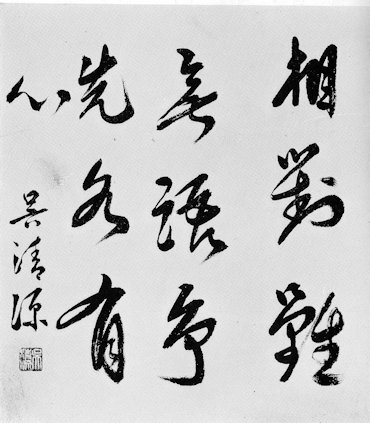 相對雖
無語爭
先各有
心
吳清源